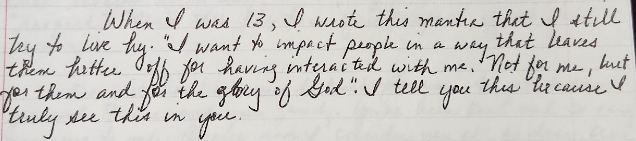 When I was 13, I wrote this mantra that I still
try to live by. "I want to impact people in a way that leaves
them better off for having interacted with me. Not for me, but
for them and for the glory of God". I tell you this because I
truly see this in you.